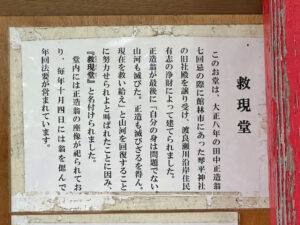 救現堂
このお堂は、大正八年の田中正造翁
七回忌の際に館林市にあった琴平神社
の旧社殿を譲り受け、渡良瀬川沿岸住民
有志の浄財によって建てられました。
正造翁が最後に「自分の身は問題でない。
山河も滅びた。正造も滅びざるを得ん。
現在を救い給え」と山河を回復すること
に努力せられよと叫ばれたことに因み、
『救現堂』と名付けられました。
堂内には正造翁の座像が祀られてお
り、毎年十月四日には翁を偲んで
年回法要が営まれています。